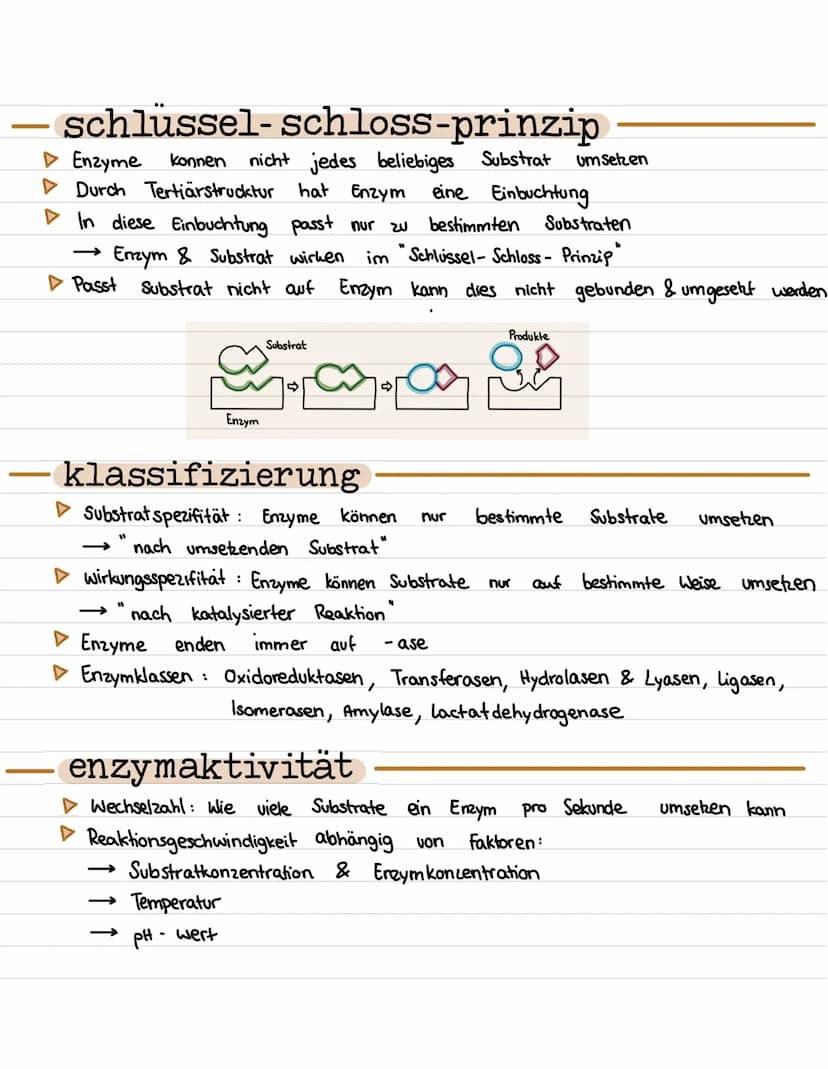 schlüssel-schloss-prinzip
Enzyme konnen nicht jedes beliebiges Substrat umsetzen
Durch Tertiärstrucktur hat Enzym eine Einbuchtung
In diese Einbuchtung passt nur zu bestimmten Substraten
→ Enzym & Substrat wirken im "Schlüssel-Schloss-Prinzip"
Passt Substrat nicht auf Enzym kann dies nicht gebunden & umgesetzt werden
Substrat
Produkte
Enzym
klassifizierung
Substratspezifität: Enzyme können nur bestimmte Substrate umsetzen
→ "nach umsetzenden Substrat"
Wirkungsspezifität: Enzyme können Substrate nur auf bestimmte Weise umsetzen
→ "nach katalysierter Reaktion"
Enzyme enden immer auf -ase
Enzymklassen: Oxidoreduktasen, Transferasen, Hydrolasen & Lyasen, Ligasen,
Isomerasen, Amylase, Lactatdehydrogenase
enzymaktivität
Wechselzahl: Wie viele Substrate ein Enzym pro Sekunde umsetzen kann
Reaktionsgeschwindigkeit abhängig von Faktoren:
→ Substratkonzentration & Enzymkonzentration
→ Temperatur
→ pH-Wert